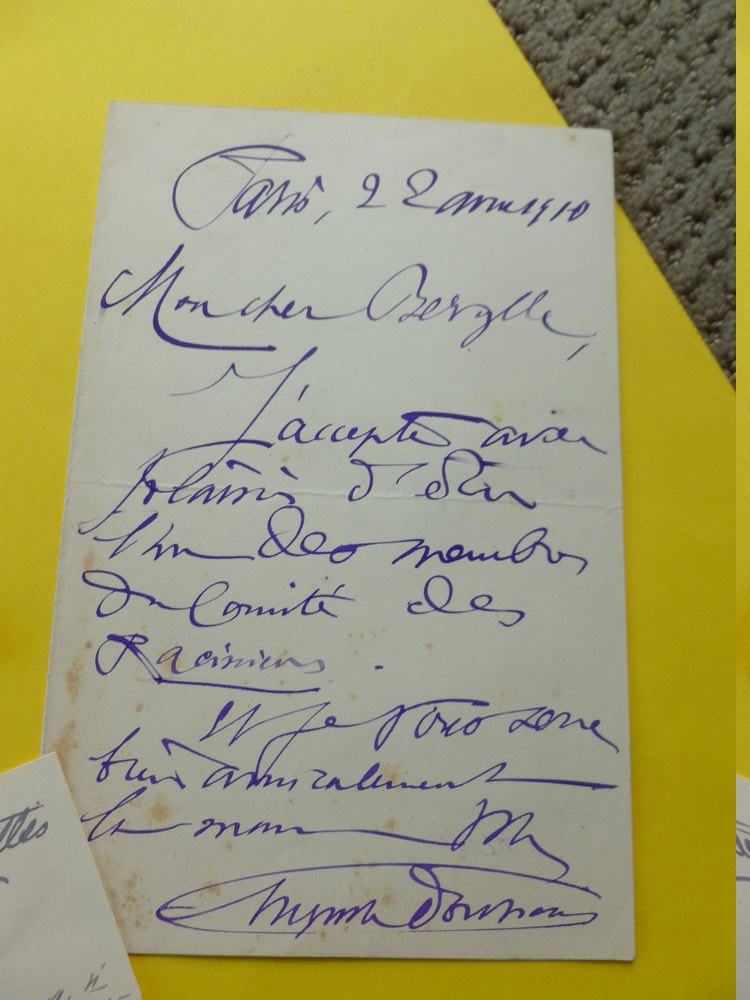 Paris, 22 avril 1910
Mon cher Bergolle,
J'accepte avec
plaisir d'être
l'un des membres
du Comité des
Raciniens.
Et je vous serre
très amicalement
la main
ttes